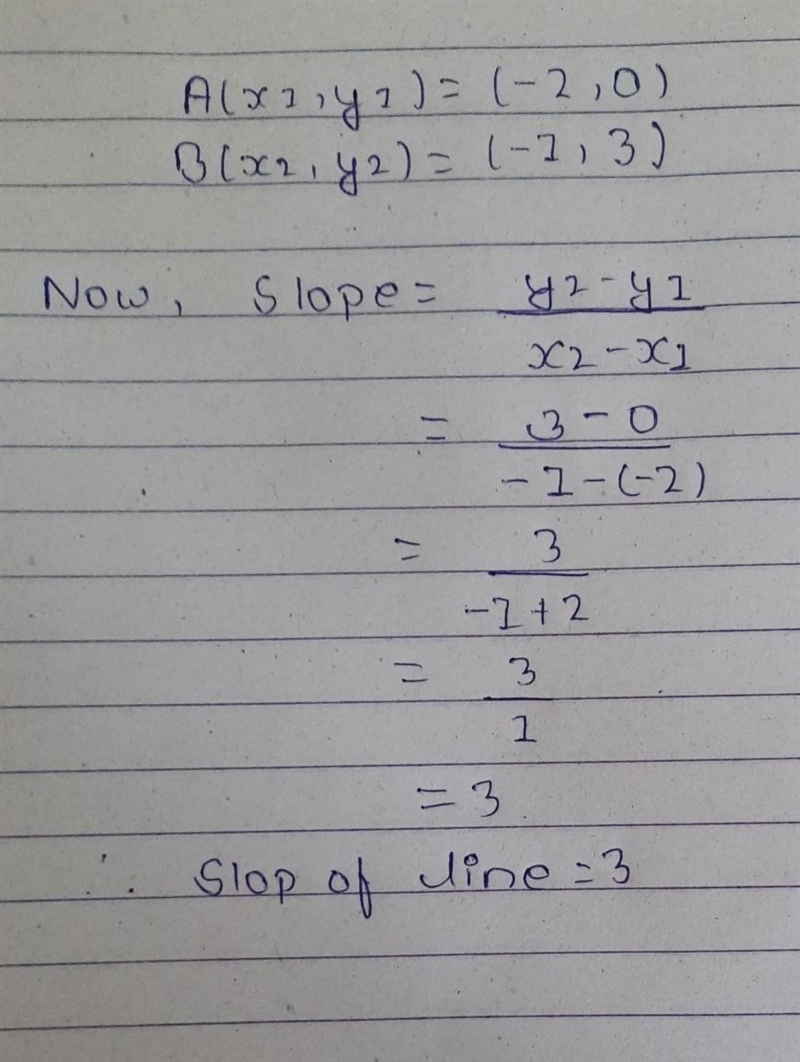 A(x1,y1) = (-2,0)
B(x2,y2) = (-1,3)
Now, Slope = y2-y1
x2-x1
= 3-0
-1-(-2)
= 3
-1+2
= 3
1
=3
∴ Slop of line =3